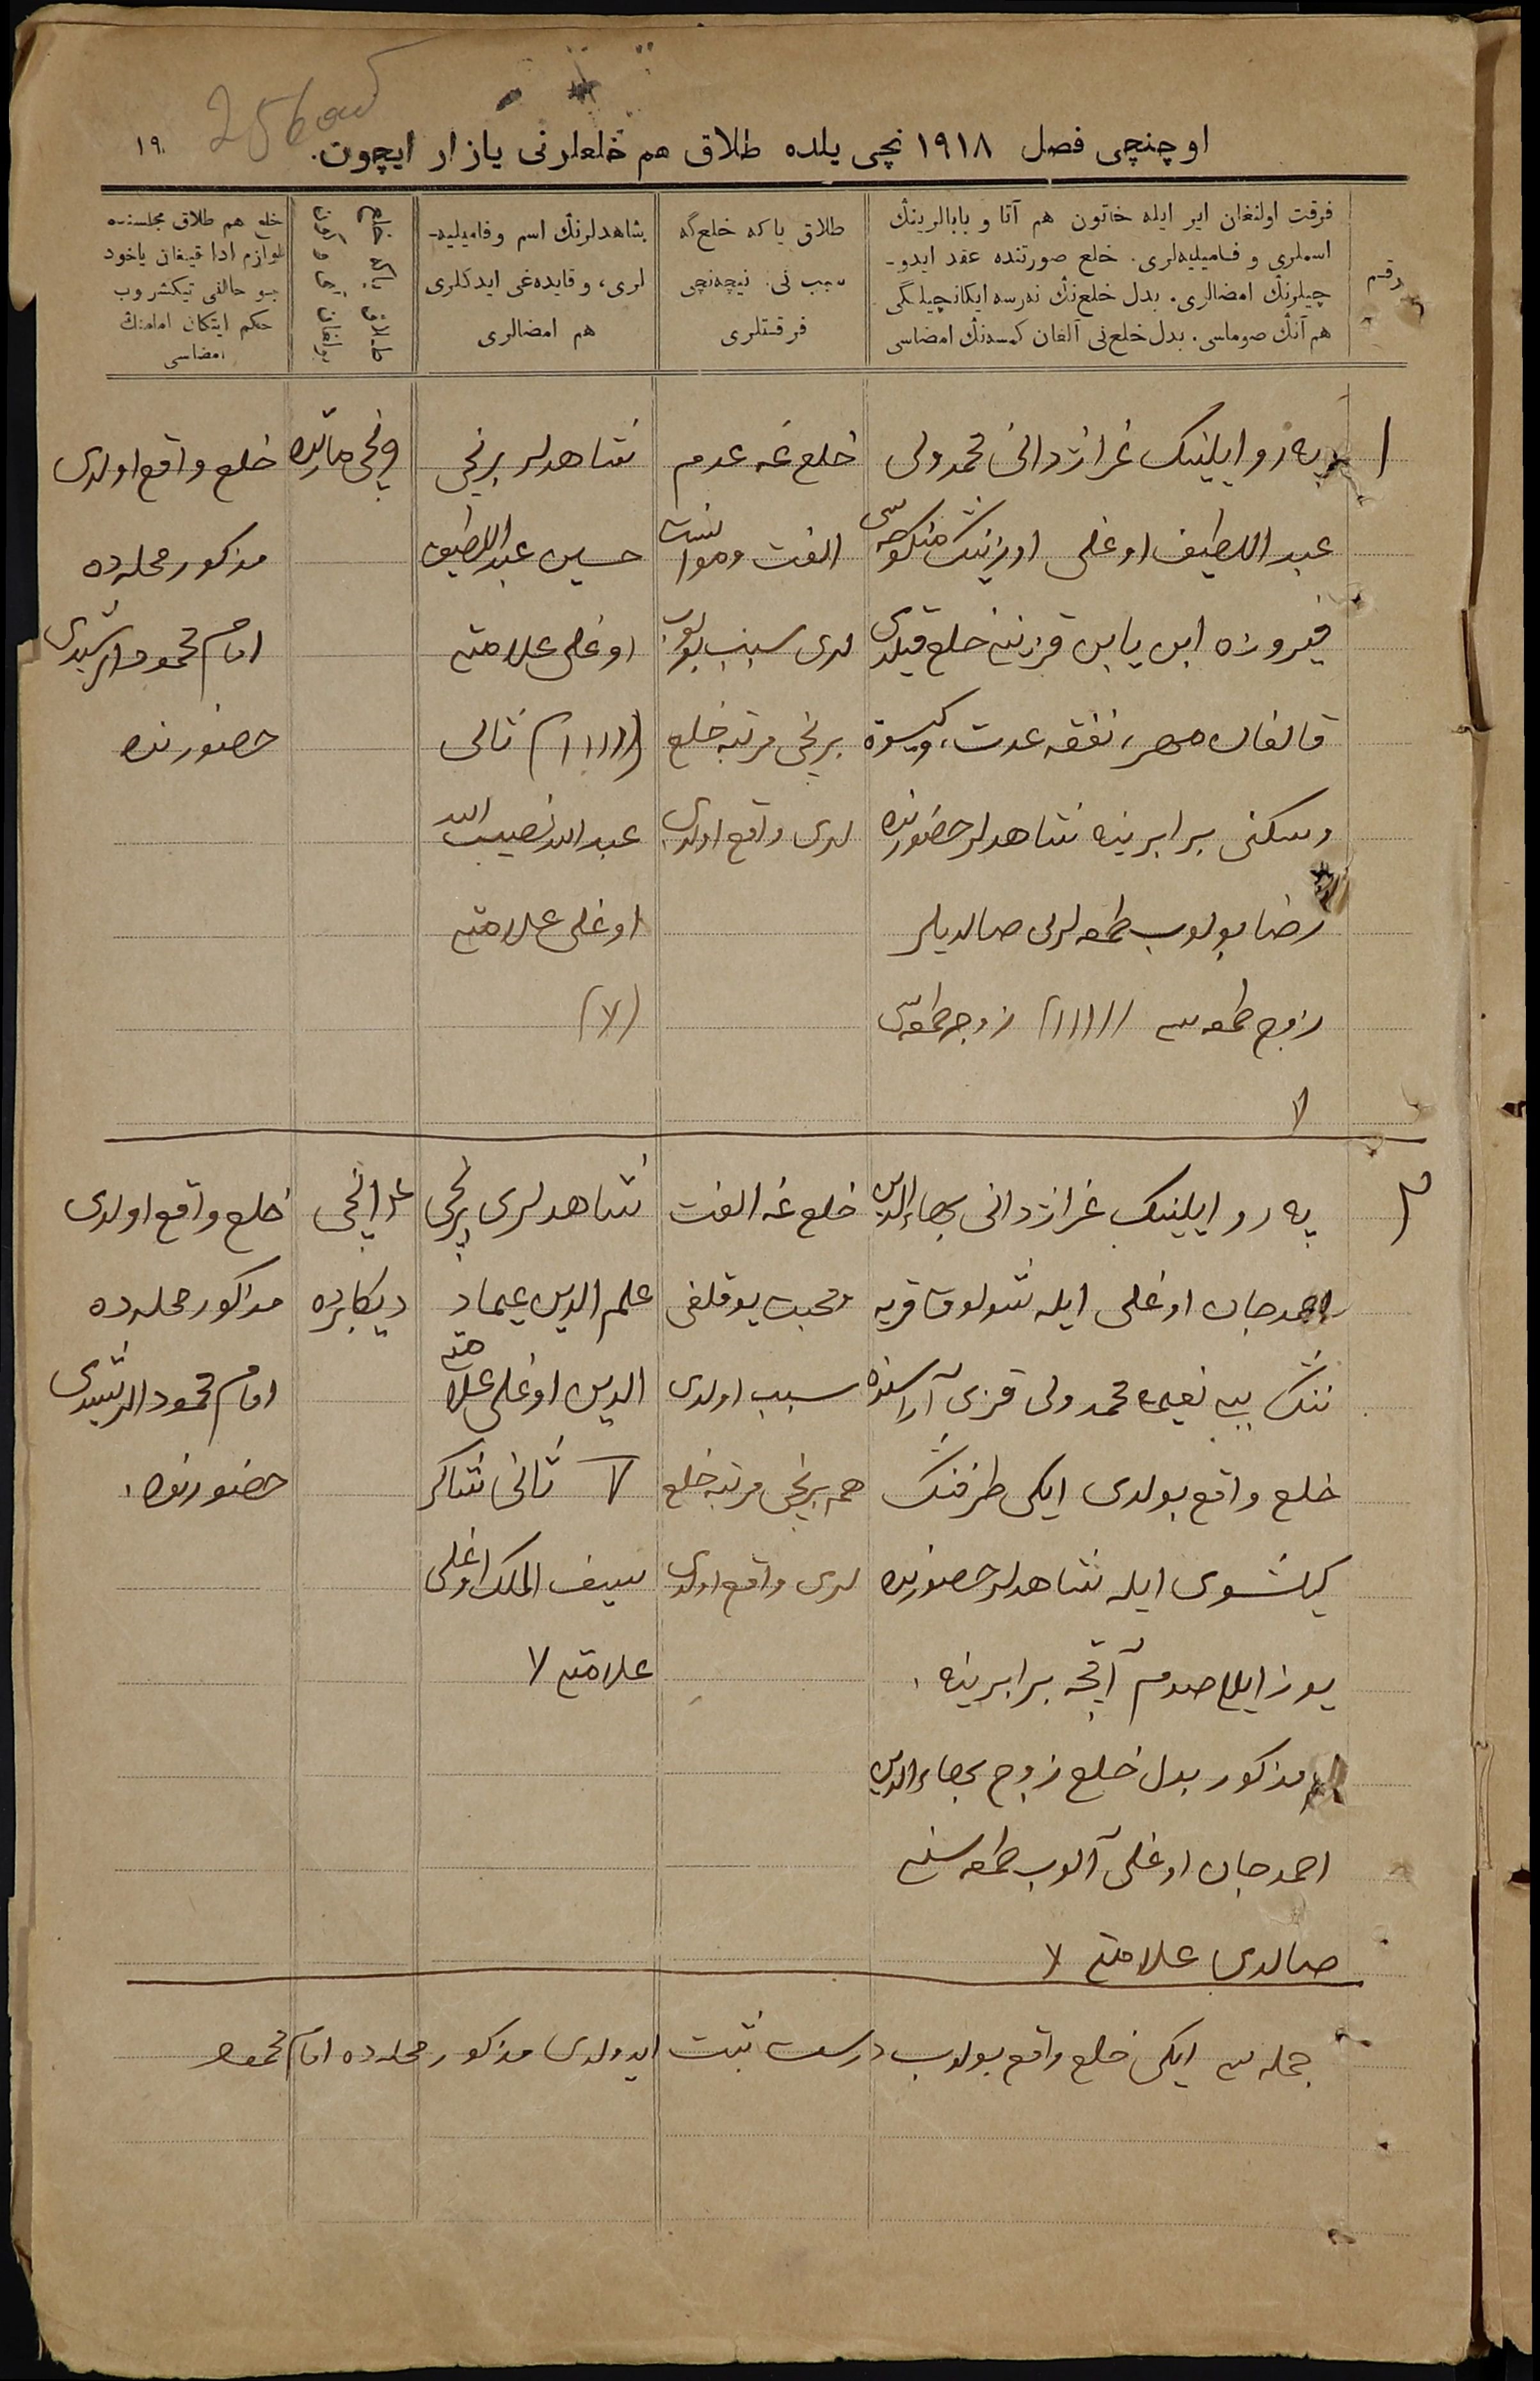 256
اوچنچی فصل ١٩١٨ نچی یلده طلاق هم خلعلرنی یازار ایچون. ١٩
رقم
فرقت اولنغان ایر ایله خاتون هم آتا و بابالرینڭ
اسملری و فامیلیەلری. خلع صورتنده عقد ایدو-
چیلرنڭ امضالری. بدل خلع‌نڭ نەرسە ایکانچیلگی
هم آنڭ صوماسی. بدل خلع‌نی آلغان کمسەنڭ امضاسی
طلاق یا که خلع‌گه
سبب نی. نیچەنچی
فرقتلری
شاهدلرنڭ اسم و فامیلیه-
لری، و قایده‌غی ایدکلری
هم امضالری
طلاق یا که خلع
بولغان آی و کون
خلع هم طلاق مجلسنده
لوازم ادا قیلغان یاخود
بو حالنی تیکشروب
حکم ایتکان امامنڭ
امضاسی
١
یه رو ایلینیک غراژدانی محمدولی
عبد اللطیف اوغلی اوزینیڭ منکوحه سی
فیروزه ابن یابن قزینی خلع قیلدی
قالغان مهر، نفقه عدت، وکیسوة
وسکنی برابرینه شاهدلر حضورنده
رضا بولوب طمغه لرنی صالدیلر
زوج طمغه سی (١١١١١) زوجه طمغه سی
٧
خلع غه عدم
الفت وموانست
لری سبب بولوب
برنجی مرتبه خلع
لری واقع اولدی
شاهدلر برنجی
حسین عبد اللطیف
اوغلی علامتی
(١١١١١) ثانی
عبد الله نصیب الله
اوغلی علامتی
(٧)
٩ نجی مارتده
خلع واقع اولدی
مذکور محله ده
امام محمود الرشیدی
حضورنده
٢
یه رو ایلینیک غراژدانی بهاء الدین
احمدجان اوغلی ایله شولوق قریه
ننڭ بیبی نعیمه محمد ولی قزی آراسنده
خلع واقع بولدی ایکی طرفنڭ
کیلشوی ایله شاهدلر حضورنده
یوز ایللی صوم آقچه برابرینه.
مذکور بدل خلع زوج بهاء الدین
احمدجان اوغلی آلوب طمغه سنی
صالدی علامتی ٧
خلع غه الفت
ومحبت یوقلغی
سبب اولدی
هم برنجی مرتبه خلع
لری واقع اولدی
شاهدلری برنجی
علم الدین عماد
الدین اوغلی علامتی
٧ ثانی شاکر
سیف الملک اوغلی
علامتی ٧
نجی
دیکابرده
خلع واقع اولدی
مذکور محله ده
امام محمود الرشیدی
حضورنده.
جمله سی ایکی خلع واقع بولوب درست ثبت ایدولدی مذکور محله ده امام محمود